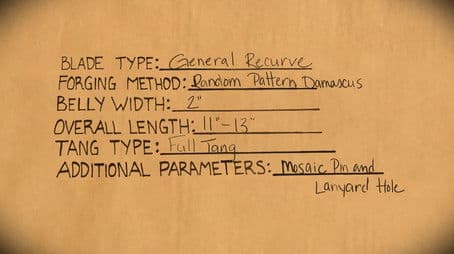 BLADE TYPE: General Recurve
FORGING METHOD: Random Pattern Damascus
BELLY WIDTH: 2"
OVERALL LENGTH: 11"-13"
TANG TYPE: Full Tang
ADDITIONAL PARAMETERS: Mosaic Pin and
Lanyard Hole